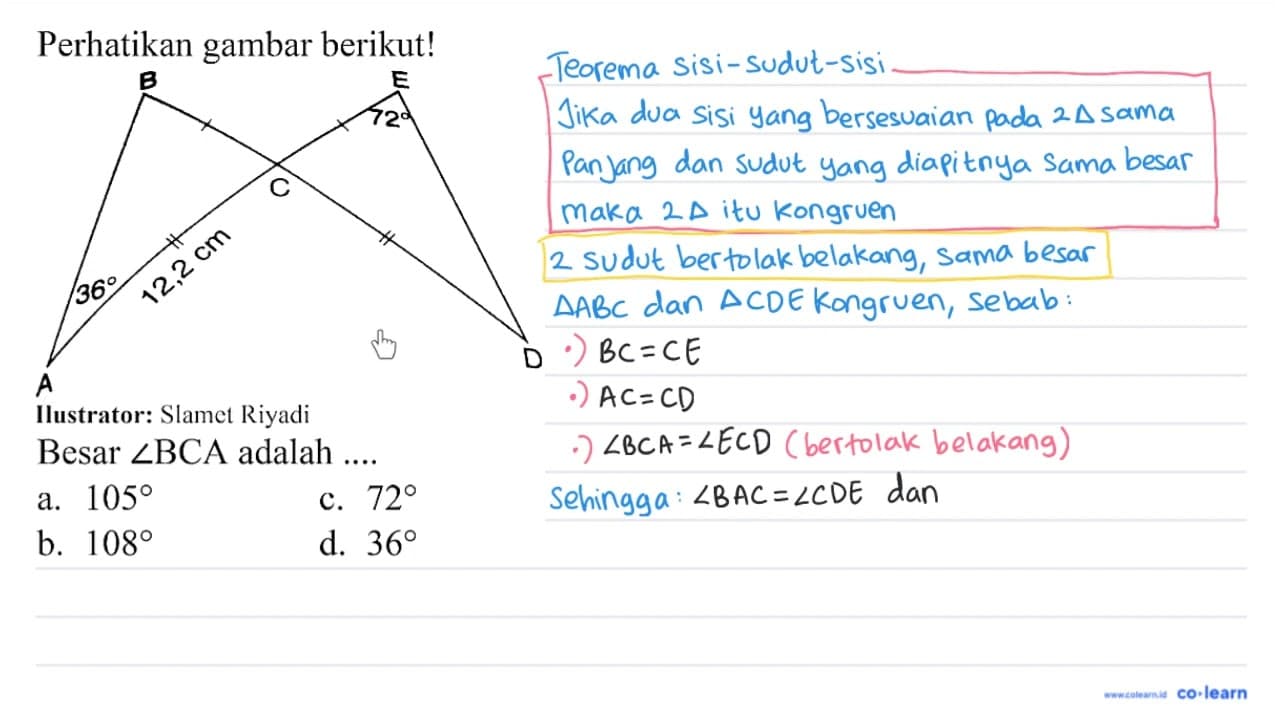 Perhatikan gambar berikut!
B
E
72°
C
36°
12,2 cm
D
A
Ilustrator: Slamet Riyadi
Besar ∠BCA adalah ....
a. 105° c. 72°
b. 108° d. 36°
Teorema sisi-sudut-sisi
Jika dua sisi yang bersesuaian pada 2Δ sama
panjang dan sudut yang diapitnya sama besar
maka 2Δ itu kongruen
2 sudut bertolak belakang, sama besar
ΔABC dan ΔCDE kongruen, sebab:
•) BC=CE
•) AC=CD
•) ∠BCA=∠ECD (bertolak belakang)
sehingga: ∠BAC=∠CDE dan
www.colearn.id co·learn